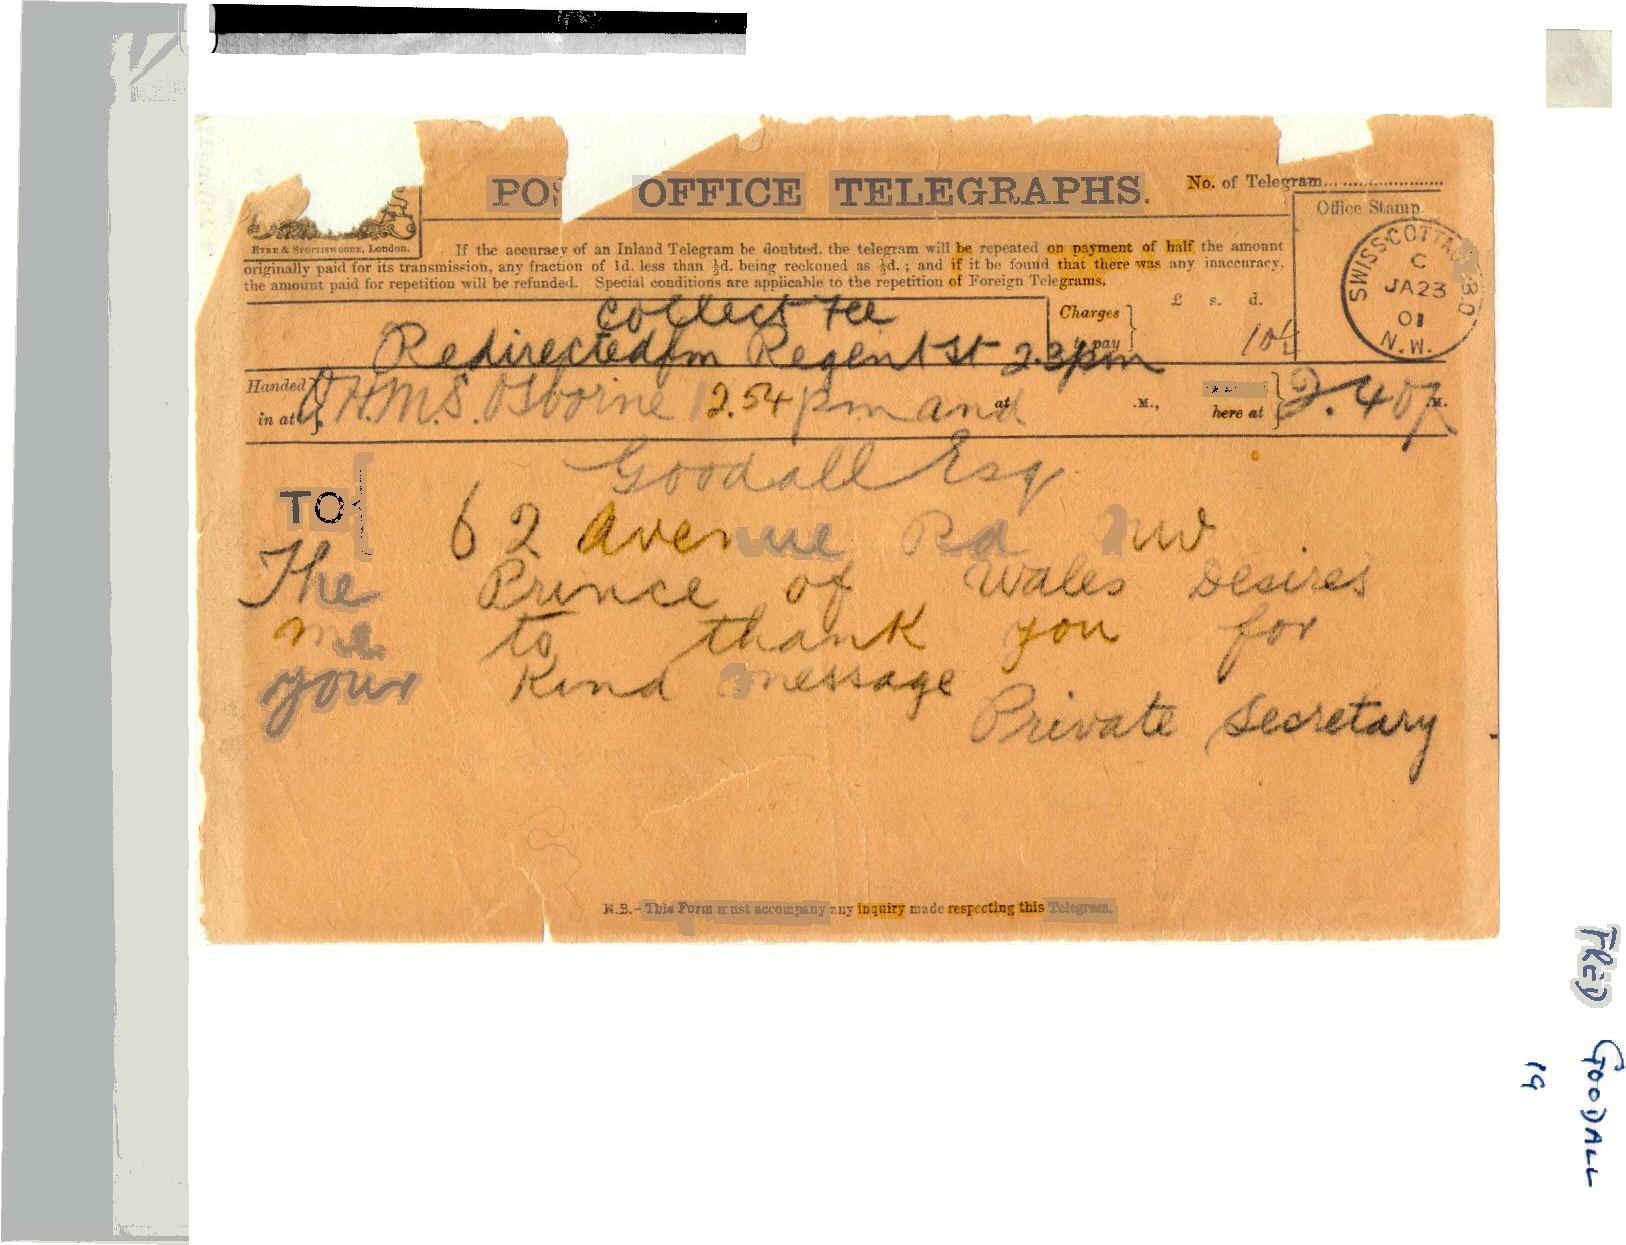 POS OFFICE TELEGRAPHS.
No. of Telegram
Office Stamp.
EYRE & SPOTTISWOODE, London.
If the accuracy of an Inland Telegram be doubted, the telegram will be repeated on payment of half the amount
originally paid for its transmission, any fraction of 1d. less than ½d. being reckoned as ½d.; and if it be found that there was any inaccuracy,
the amount paid for repetition will be refunded. Special conditions are applicable to the repetition of Foreign Telegrams.
SWISS COTTAGE B.O
C
JA 23
01
N.W.
Collect Fee
Redirected fm Regent St 2.3pm
Charges to pay
£ s. d.
Handed in at
H.M.S. Osborne 2.54 pm and
at
.M.,
here at
2.40
M.
TO
Goodall Esq
62 Avenue Rd NW
The Prince of Wales Desires
me to thank you for
your Kind message
Private Secretary
N.B.-This Form must accompany any inquiry made respecting this Telegram.
FRED GOODALL
19